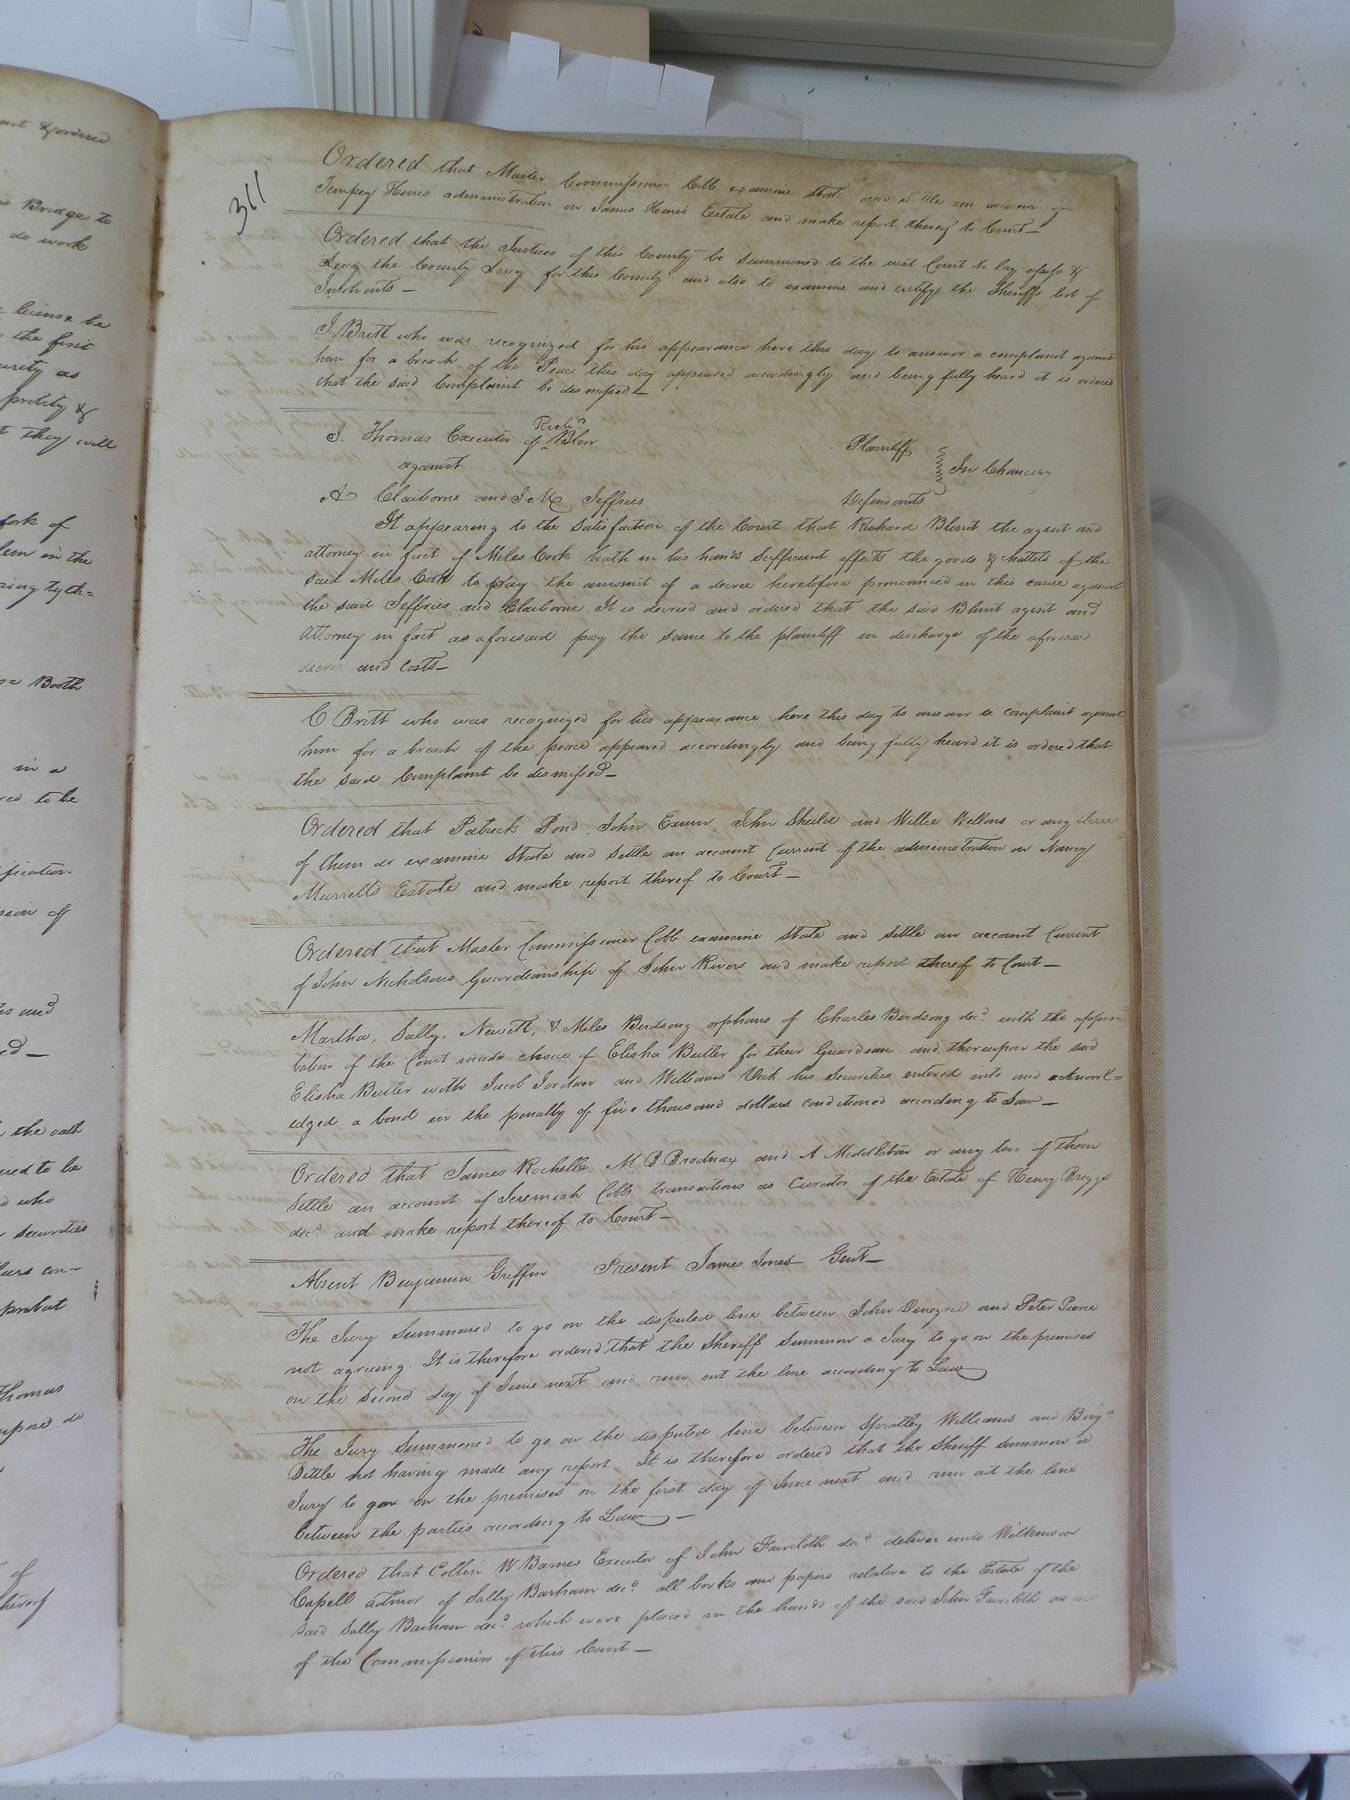 361
Ordered that Master Commissioner Cobb examine State and settle an account of
Tempey Hines administration on James Hines Estate and make report thereof to Court—
Ordered that the Justices of this County be summoned to the next Court to lay assess &
Levy the County Levy for this County and also to examine and certify the Sheriffs list of
Insolvents—
J Britt who was recognized for his appearance here this day to answer a complaint against
him for a breach of the Peace this day appeared accordingly and being fully heard it is ordered
that the said Complaint be dismissed—
J. Thomas Executor of Richd Blow Plaintiff
against In Chancery
A Claiborne and J M Jeffries Defendants
It appearing to the satisfaction of the Court that Richard Blunt the agent and
attorney in fact of Miles Cook hath in his hands sufficient effects the goods & chattels of the
said Miles Cook to pay the amount of a decree heretofore pronounced in this cause against
the said Jeffries and Claiborne It is decreed and ordered that the said Blunt agent and
Attorney in fact as aforesaid pay the same to the plaintiff in discharge of the aforesaid
decree and costs—
C Britt who was recognized for his appearance here this day to answer a complaint against
him for a breach of the peace appeared accordingly and being fully heard it is ordered that
the said Complaint be dismissed—
Ordered that Patrick Pond, John Exum, John Sheild and Willie Wellons or any three
of them do examine State and Settle an account Current of the administration on Nancy
Murrells Estate and make report thereof to Court—
Ordered that Master Commissioner Cobb examine State and Settle an account Current
of John Nicholsons Guardianship of John Rivers and make report thereof to Court—
Martha, Sally, Newett, & Miles Birdsong orphans of Charles Birdsong decd. with the appro-
bation of the Court made choice of Elisha Butler for their Guardian and thereupon the said
Elisha Butler with Jacob Jordan and Williams Vick his Securities entered into and acknowl=
edged a bond in the penalty of five thousand dollars conditioned according to Law—
Ordered that James Rochelle, M B Brodnax and A Middleton or any two of them
Settle an account of Jeremiah Cobbs transactions as Curator of the Estate of Henry Briggs
decd. and make report thereof to Court—
Absent Benjamin Griffin Present James Jones Gent—
The Jury Summoned to go on the disputed line between John and Peter Pierce
not agreeing. It is therefore ordered that the Sheriff Summon a Jury to go on the premises
on the Second day of June next and run out the line according to Law
The Jury Summoned to go on the disputed line between Spratley Williams and Benjn
Bittle not having made any report It is therefore ordered that the Sheriff summon a
Jury to go on the premises on the first day of June next and run out the line
between the parties according to Law—
Ordered that Collin W Barnes Executor of John Faircloth decd deliver unto Wilkinson
Capell admor of Sally Barham decd. all books and papers relative to the Estate of the
said Sally Barham decd. which were placed in the hands of the said John Faircloth as one
of the Commissioners of this Court—